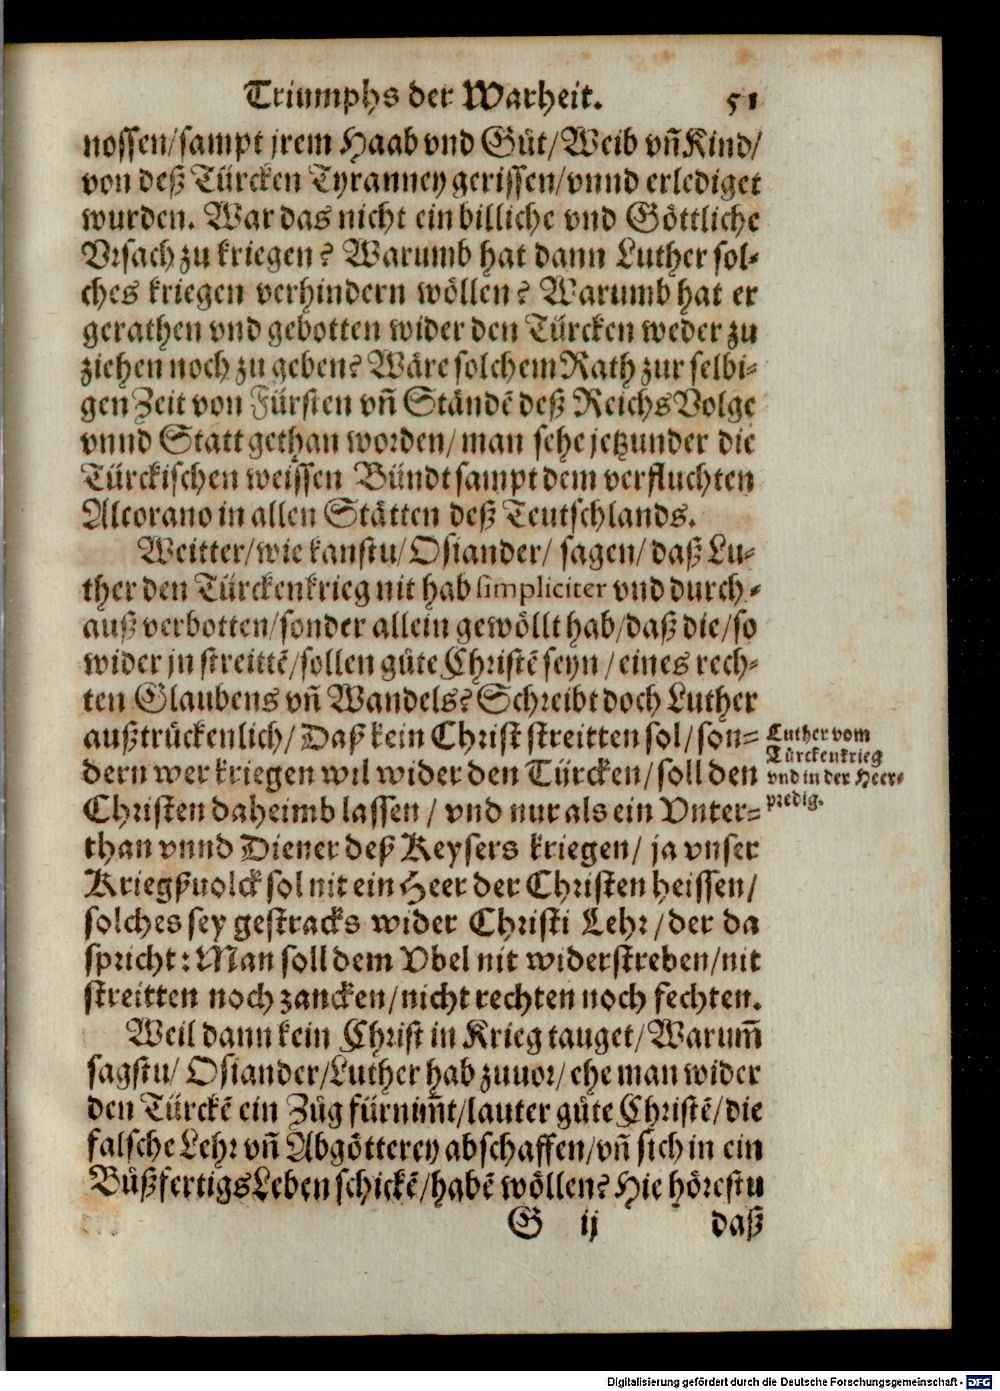 Triumphs der Warheit. 51
nossen/sampt jrem Haab vnd Gůt/Weib vñ Kind/
von deß Türcken Tyranney gerissen/vnnd erlediget
wurden. War das nicht ein billiche vnd Göttliche
Vrsach zu kriegen? Warumb hat dann Luther sol-
ches kriegen verhindern wöllen? Warumb hat er
gerathen vnd gebotten wider den Türcken weder zu
ziehen noch zu geben? Wäre solchem Rath zur selbi-
gen Zeit von Fürsten vñ Ständẽ deß Reichs Volge
vnnd Statt gethan worden/man sehe jetzunder die
Türckischen weissen Bündt sampt dem verfluchten
Alcorano in allen Stätten deß Teutschlands.
Weitter/wie kanstu/Osiander/sagen/daß Lu-
ther den Türckenkrieg nit hab simpliciter vnd durch-
auß verbotten/sonder allein gewöllt hab/daß die/so
wider jn streittẽ/sollen gůte Christẽ seyn/eines rech-
ten Glaubens vñ Wandels? Schreibt doch Luther
außtrückenlich/Daß kein Christ streitten sol/son-
dern wer kriegen wil wider den Türcken/soll den
Christen daheimb lassen/vnd nur als ein Vnter-
than vnnd Diener deß Keysers kriegen/ja vnser
Kriegßuolck sol nit ein Heer der Christen heissen/
solches sey gestracks wider Christi Lehr/der da
spricht: Man soll dem Vbel nit widerstreben/nit
streitten noch zancken/nicht rechten noch fechten.
Luther vom
Türckenkrieg
vnd in der Heer-
predig.
Weil dann kein Christ in Krieg tauget/Warum̃
sagstu/Osiander/Luther hab zuuor/ehe man wider
den Türckẽ ein Zůg fürnim̃t/lauter gůte Christẽ/die
falsche Lehr vñ Abgötterey abschaffen/vñ sich in ein
Bůßfertigs Leben schickẽ/habẽ wöllen? Hie hörestu
G ij daß
Digitalisierung gefördert durch die Deutsche Forschungsgemeinschaft - DFG